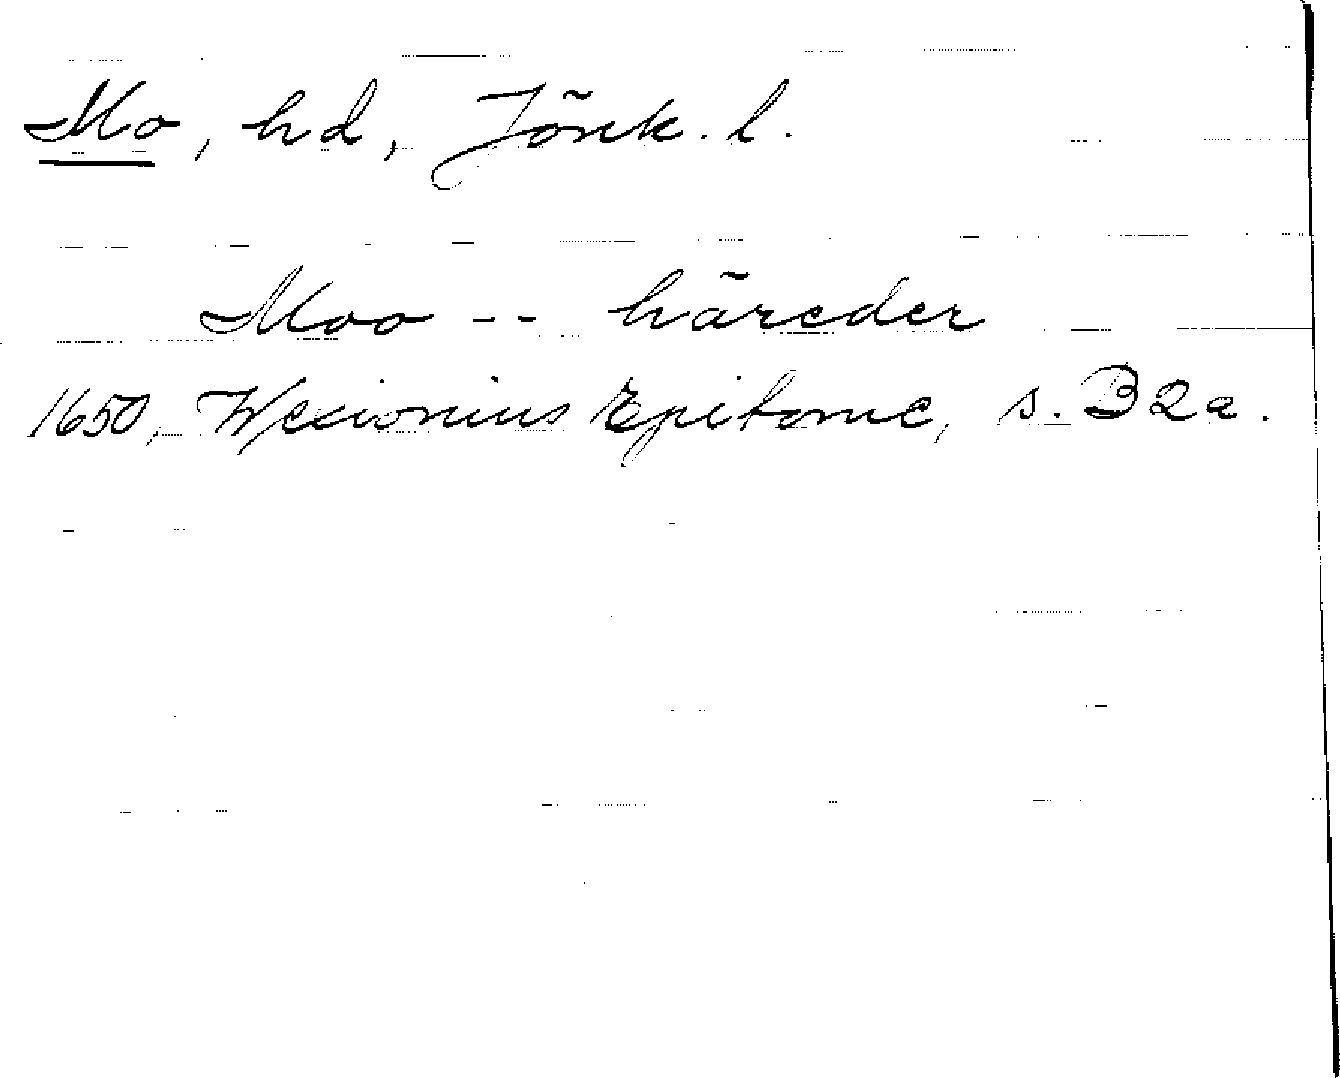 Mo, hd, Jönk. l.
Moo -- häreder
1650, Wexionius Epitome, s. B2a.